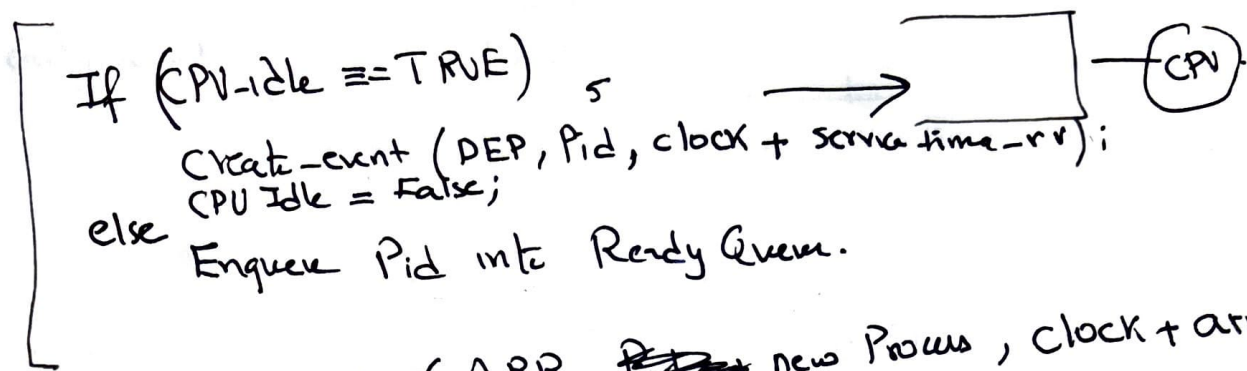 If (CPU-idle === TRUE)
5
CPU
Create-event (DEP, Pid, clock + service time-rv);
CPU Idle = False;
else
Enqueue Pid into Ready Queue.
(ARR, new Process, clock + arr